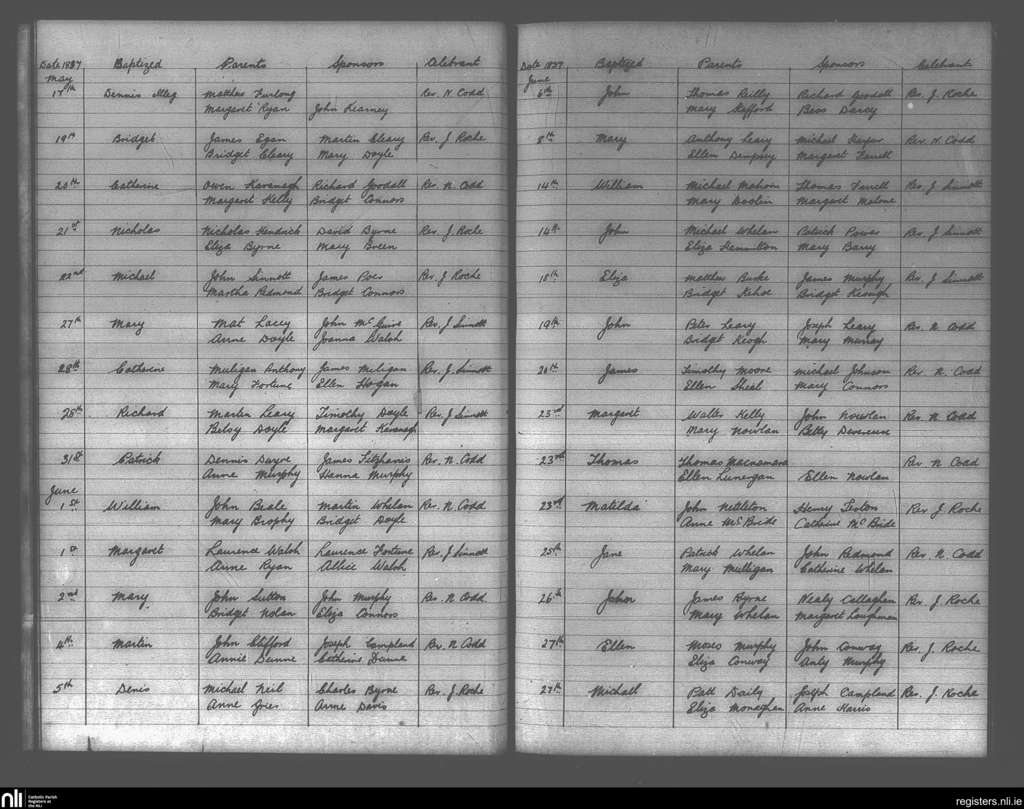 Date 1837 Baptized Parents Sponsors Celebrant
May
17th Dennis Matthew Furlong Rev. N Codd
Margaret Ryan John Kearney
19th Bridget James Egan Martin Cleary Rev. J Roche
Bridget Cleary Mary Doyle
20th Catherine Owen Kavanagh Richard Goodall Rev. N. Codd
Margaret Kelly Bridget Connors
21st Nicholas Nicholas Hendrick David Byrne Rev. J Roche
Eliza Byrne Mary Breen
22nd Michael John Sinnott James Poer Rev. J Roche
Martha Redmond Bridget Connors
27th Mary Mat Lacey John McGuire Rev. J Sinnott
Anne Doyle Joanna Walsh
28th Catherine Muligan Anthony James Miligan Rev. J. Sinnott
Mary Fortune Ellen Hogan
28th Richard Martin Leary Timothy Doyle Rev. J Sinnott
Betsy Doyle Margaret Kavanagh
31st Patrick Dennis Dwyre James Fitzharris Rev. N. Codd
Anne Murphy Hanna Murphy
June
1st William John Beale Martin Whelan Rev. N. Codd
Mary Brophy Bridget Doyle
1st Margaret Laurence Walsh Laurence Fortune Rev. J Sinnott
Anne Ryan Allice Walsh
2nd Mary John Sutton John Murphy Rev. N. Codd
Bridget Nolan Eliza Connors
4th Martin John Clifford Joseph Campland Rev. N. Codd
Annie Dunne Catherine Dunne
5th Denis Michael Neil Charles Byrne Rev. J. Roche
Anne Anne Davis
Date 1837 Baptized Parents Sponsors Celebrant
June
6th John Thomas Reilly Richard Goodall Rev. J. Roche
Mary Stafford Bess Darcy
8th Mary Anthony Leary Michael Rev. N. Codd
Ellen Dempsey Margaret Farrell
14th William Michael Mahon Thomas Farrell Rev. J Sinnott
Mary Doolin Margaret Malone
14th John Michael Whelan Patrick Power Rev. J Sinnott
Eliza Hamilton Mary Barry
18th Eliza Matthew Burke James Murphy Rev. J Sinnott
Bridget Kehoe Bridget Keough
19th John Peter Leary Joseph Leary Rev. N. Codd
Bridget Keogh Mary Murray
20th James Timothy Moore Michael Johnson Rev N. Codd
Ellen Sheal Mary Connors
23rd Margaret Walter Kelly John Nowlan Rev. N. Codd
Mary Nowlan Betty Devereux
23rd Thomas Thomas Macnamara Rev. N Codd
Ellen Lunergan Ellen Nowlan
23rd Matilda John Nettleton Henry Sexton Rev. J Roche
Anne McBride Catherine McBride
25th Jane Patrick Whelan John Redmond Rev. N. Codd
Mary Mulligan Catherine Whelan
26th John James Byrne Nealy Callaghan Rev. J. Roche
Mary Whelan Margaret Loughman
27th Ellen Moses Murphy John Conway Rev. J. Roche
Eliza Conway Anty Murphy
27th Michall Patt Daily Joseph Campland Rev. J. Roche
Eliza Monaghan Anne Harris
nli Catholic Parish
Registers at
the NLI
registers.nli.ie